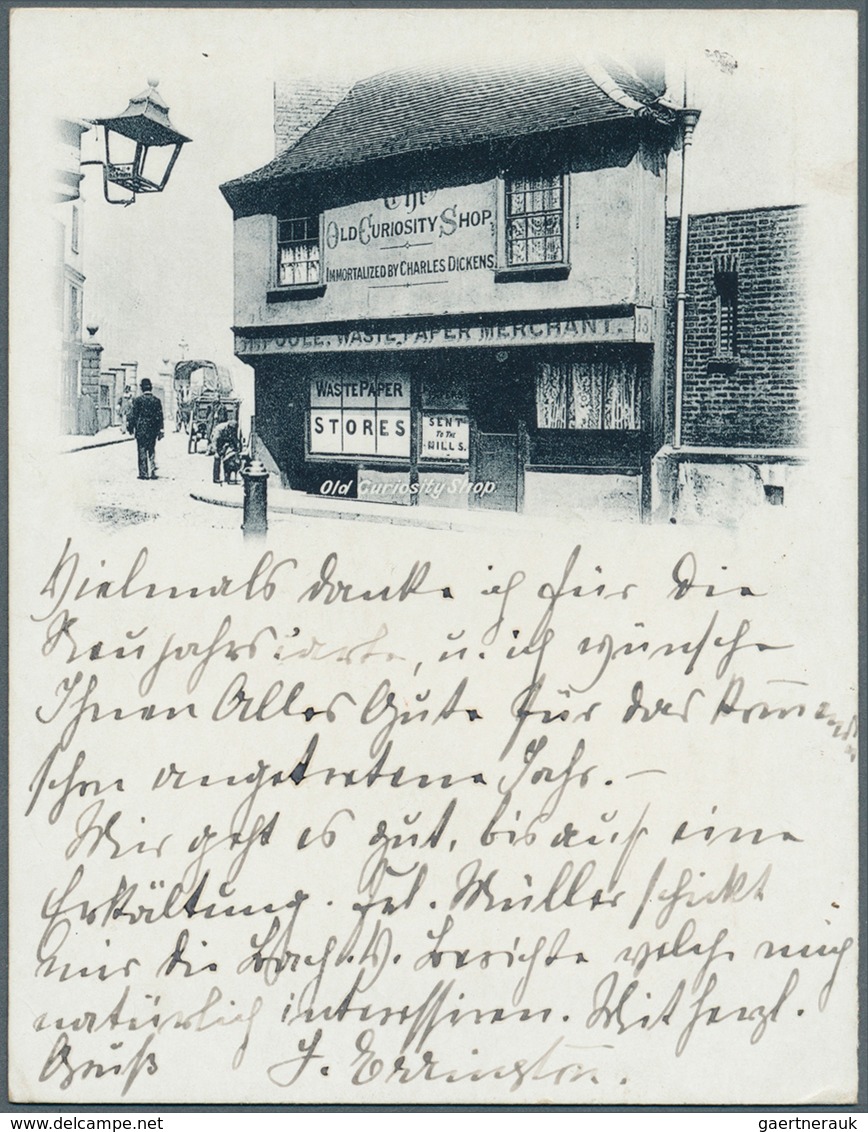 The
Old Curiosity Shop,
Immortalized by Charles Dickens.
Poole, Waste Paper Merchant. 13
Waste Paper
Stores
Sent
to the
Mills.
Old Curiosity Shop
Vielmals danke ich für die
Neujahrskarte, u. ich wünsche
Ihnen Alles Gute für das
schon angetretene Jahr. —
Mir geht es gut, bis auf eine
Erkältung. Frl. Müller schickt
mir die Bach. V. Berichte welche mich
natürlich interessiren. Mit herzl.
Gruß J. Errington.
gaertnerauk